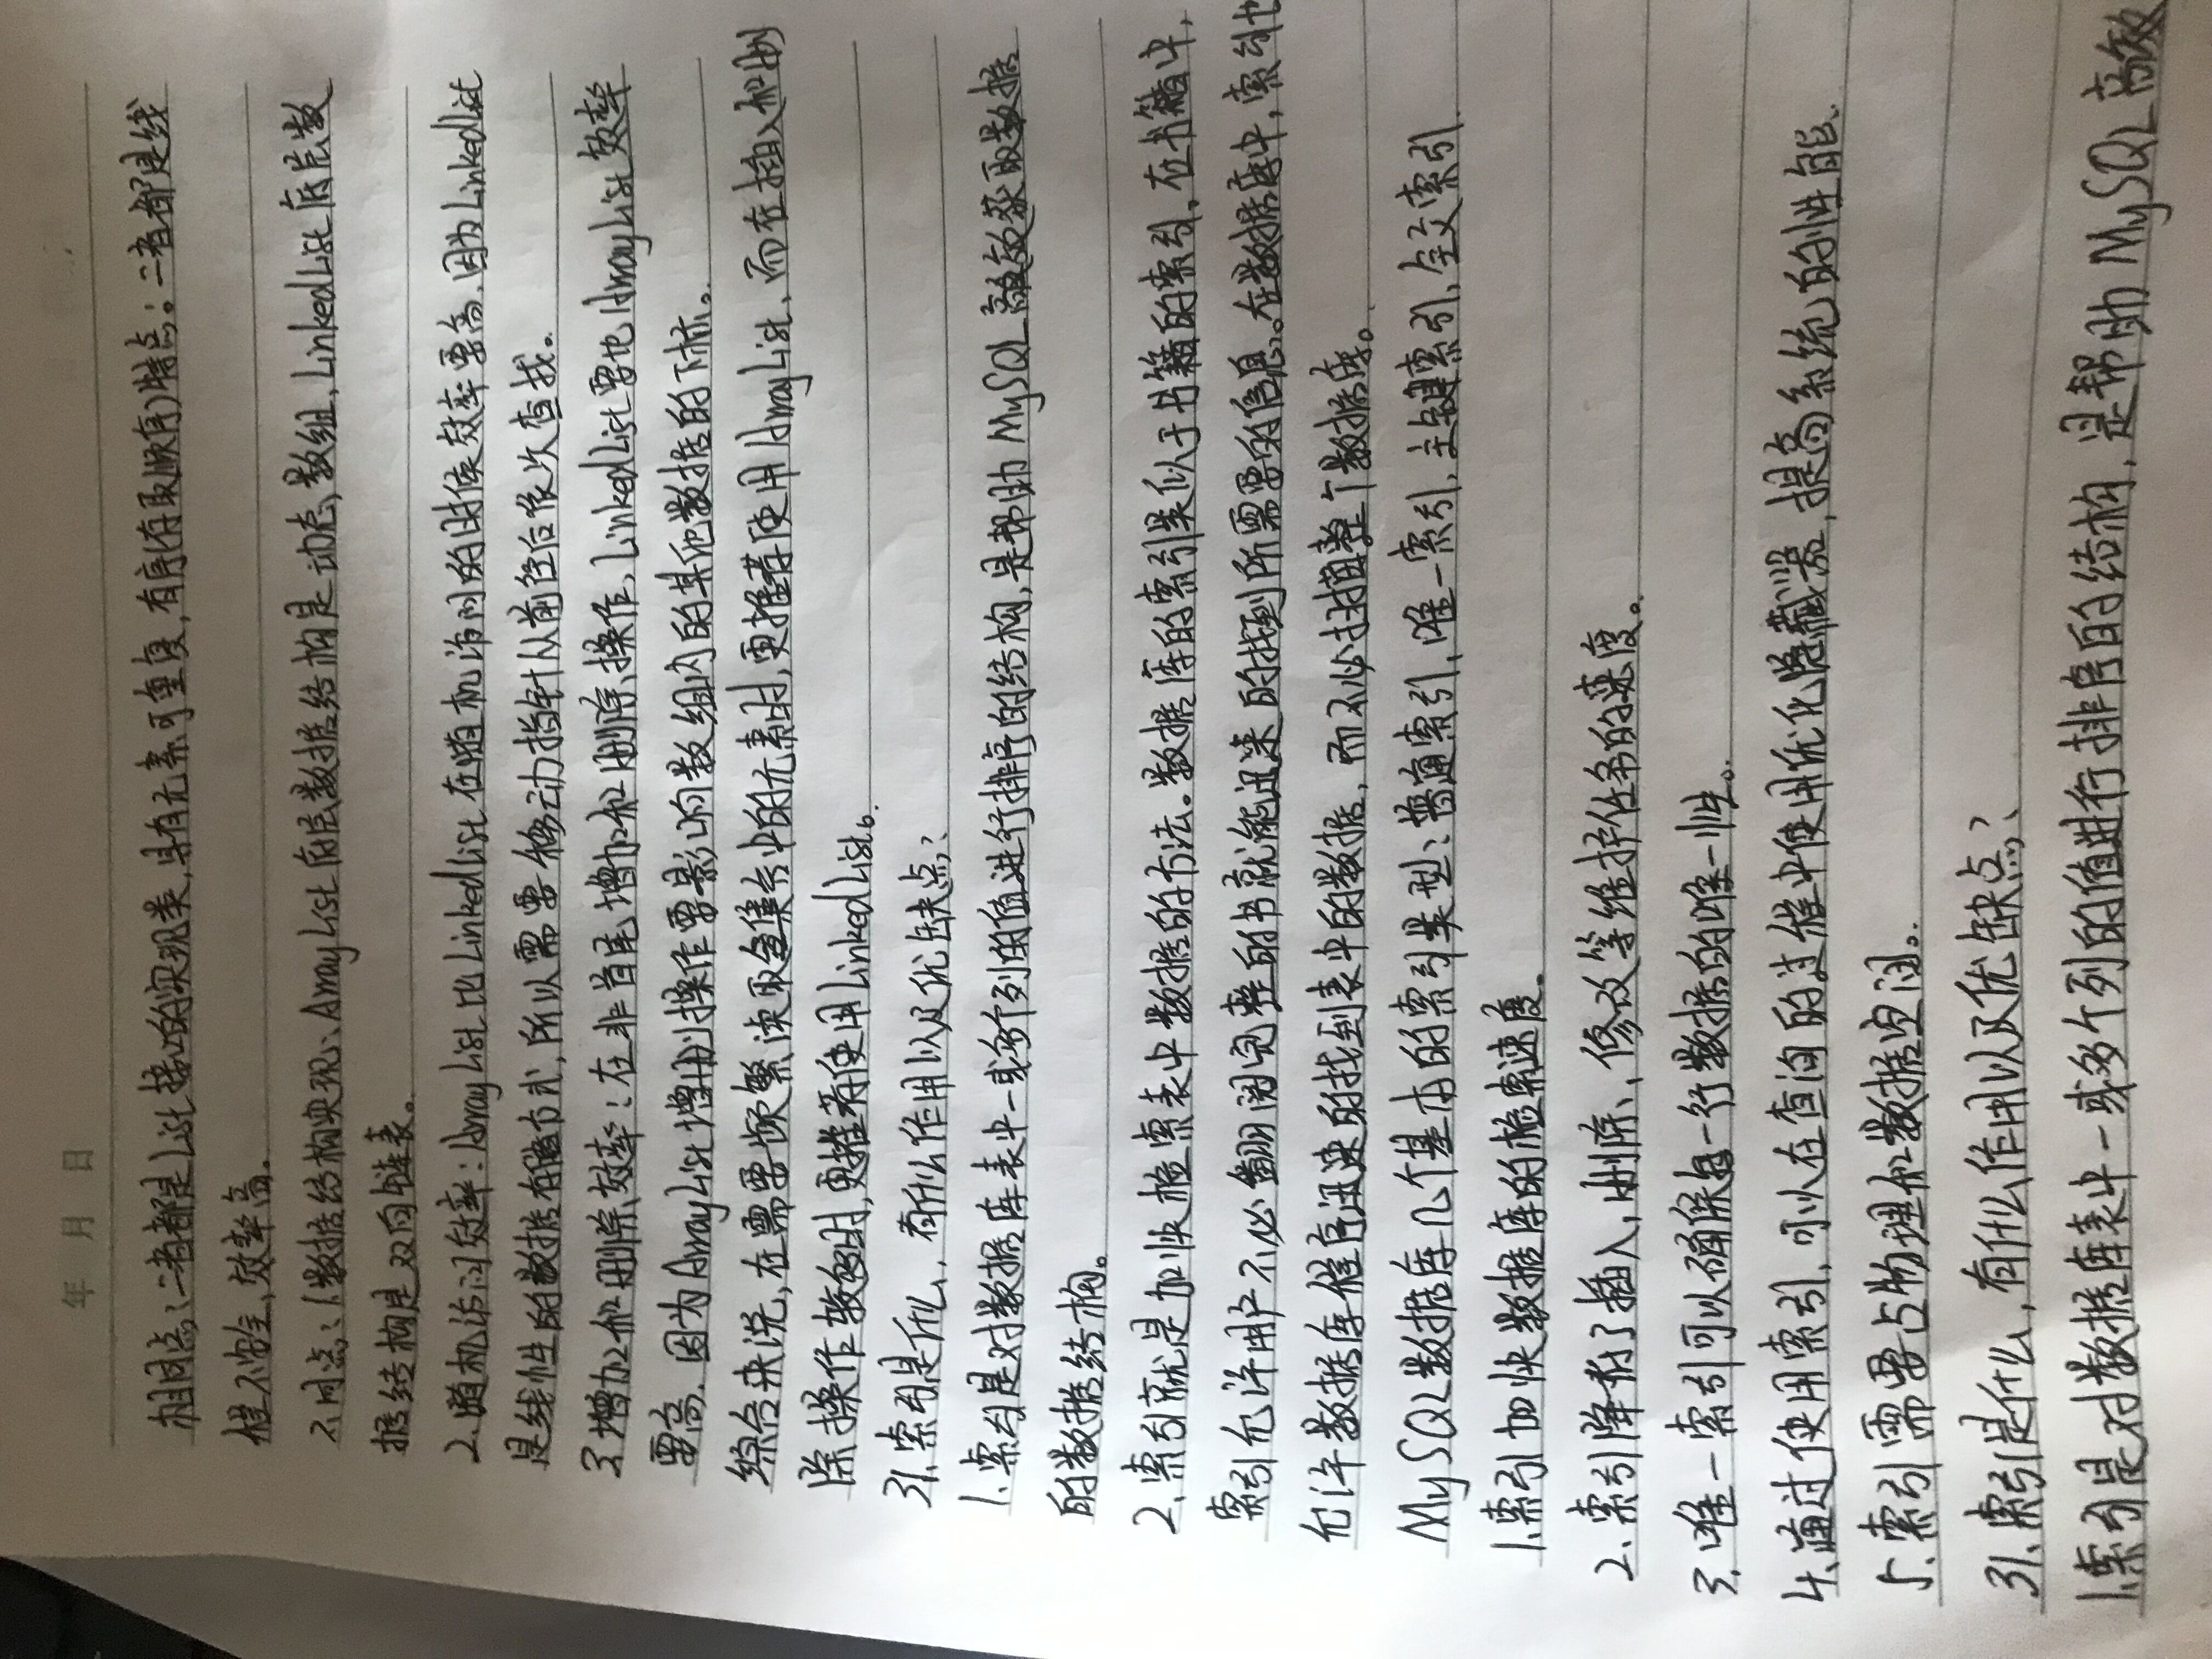 年 月 日
相同点:二者都是List接口的实现类,具有元素可重复,有序(存取顺序)特点。二者都是线
程不安全,效率高。
不同点:1.数据结构实现、ArrayList底层数据结构是动态数组,LinkedList底层数
据结构是双向链表。
2.随机访问效率:ArrayList比LinkedList在随机访问的时候效率要高.因为LinkedList
是线性的数据存储方式,所以需要移动指针从前往后依次查找。
3.增加和删除效率:在非首尾增加和删除操作,LinkedList要比ArrayList效率
要高.因为ArrayList增删操作要影响数组内的其他数据的下标。
综合来说,在需要频繁读取集合中的元素时,更推荐使用ArrayList,而在插入和删
除操作较多时,更推荐使用LinkedList。
31.索引是什么,有什么作用以及优缺点?
1.索引是对数据库表中一或多个列的值进行排序的结构,是帮助MySQL高效获取数据
的数据结构。
2.索引就是加快检索表中数据的方法。数据库的索引类似于书籍的索引。在书籍中,
索引允许用户不必翻阅完整的书就能迅速的找到所需要的信息。在数据库中,索引也
允许数据库程序迅速的找到表中的数据,而不必扫描整个数据库。
MySQL数据库几个基本的索引类型:普通索引,唯一索引,主键索引,全文索引
1.索引加快数据库的检索速度。
2.索引降低了插入,删除,修改等维护任务的速度。
3.唯一索引可以确保每一行数据的唯一性。
4.通过使用索引,可以在查询的过程中使用优化隐藏器,提高系统的性能.
5.索引需要占物理和数据空间。
31.索引是什么,有什么作用以及优缺点?
1.索引是对数据库表中一或多个列的值进行排序的结构,是帮助MySQL高效